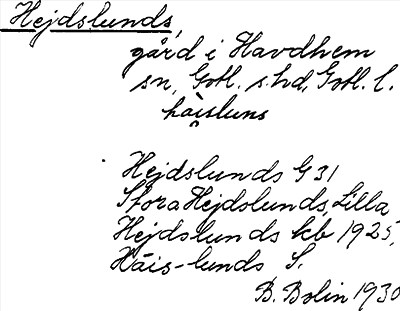 Hejdslunds,
gård i Havdhem
sn, Gotl. s. hd, Gotl. l.
hài̯sluns
Hejdslunds G 31
Stora Hejdslunds, Lilla
Hejdslunds kb 1925,
Häis-lunds S.
B. Bolin 1930